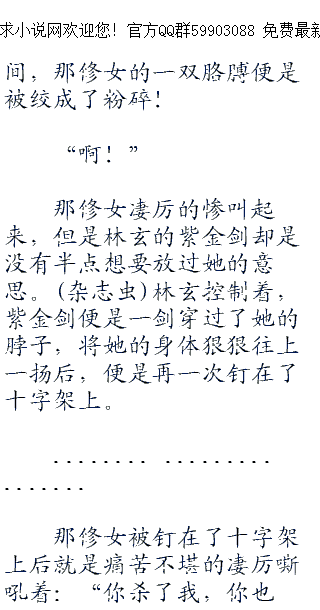 求小说网欢迎您！官方QQ群59903088 免费最新
间，那修女的一双胳膊便是
被绞成了粉碎！
“啊！”
那修女凄厉的惨叫起
来，但是林玄的紫金剑却是
没有半点想要放过她的意
思。(杂志虫)林玄控制着，
紫金剑便是一剑穿过了她的
脖子，将她的身体狠狠往上
一扬后，便是再一次钉在了
十字架上。
........ .........
.......
那修女被钉在了十字架
上后就是痛苦不堪的凄厉嘶
吼着：“你杀了我，你也